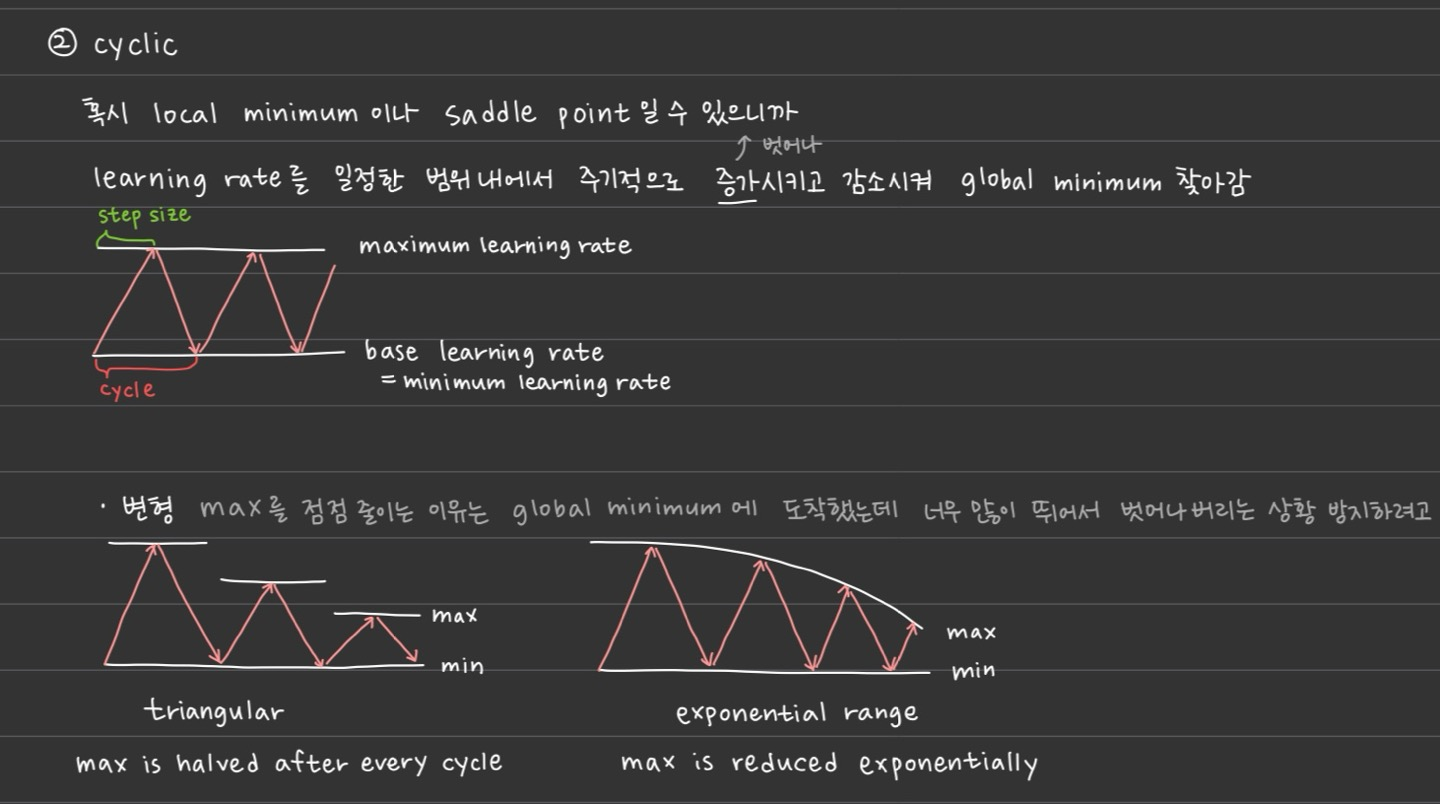 ② cyclic
혹시 local minimum 이나 saddle point 일 수 있으니까
↑ 벗어나
learning rate를 일정한 범위 내에서 주기적으로 증가시키고 감소시켜 global minimum 찾아감
step size
maximum learning rate
base learning rate
= minimum learning rate
cycle
· 변형 max를 점점 줄이는 이유는 global minimum에 도착했는데 너무 많이 뛰어서 벗어나버리는 상황 방지하려고
max
min
triangular
max is halved after every cycle
max
min
exponential range
max is reduced exponentially